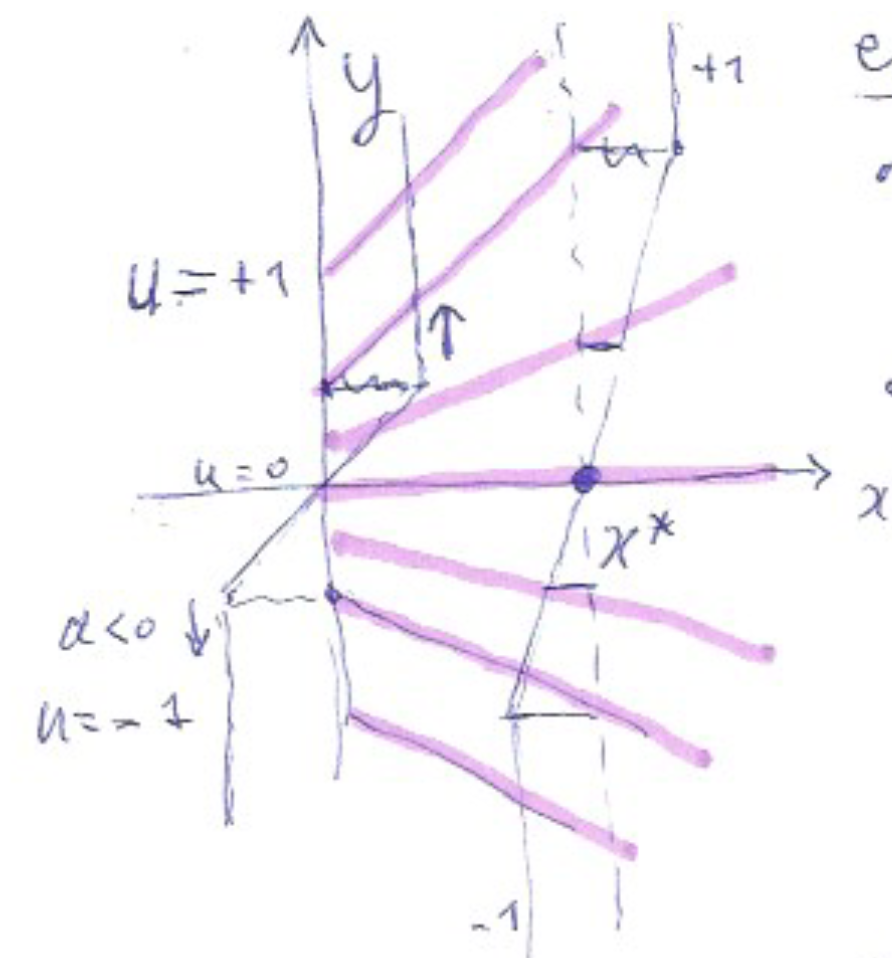 y
+1
e
u = +1
↑
u = 0
x
x*
α < 0 ↓
u = - 1
- 1